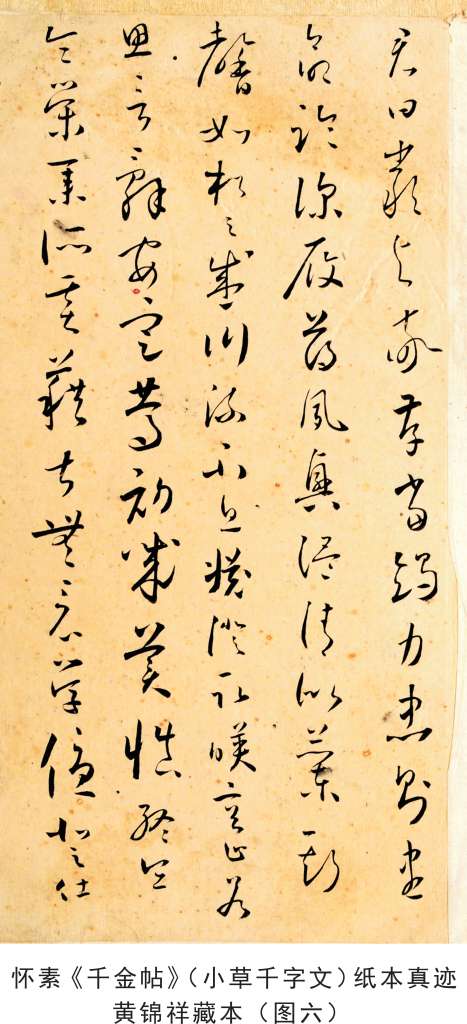 君曰嚴与敬孝當竭力忠則盡
命臨深履薄夙興温凊似蘭斯
馨如松之盛川流不息淵澄取暎容止若
思言辭安定篤初誠美慎終宜
令榮業所基藉甚無竟學優登仕
怀素《千金帖》（小草千字文）纸本真迹
黄锦祥藏本（图六）